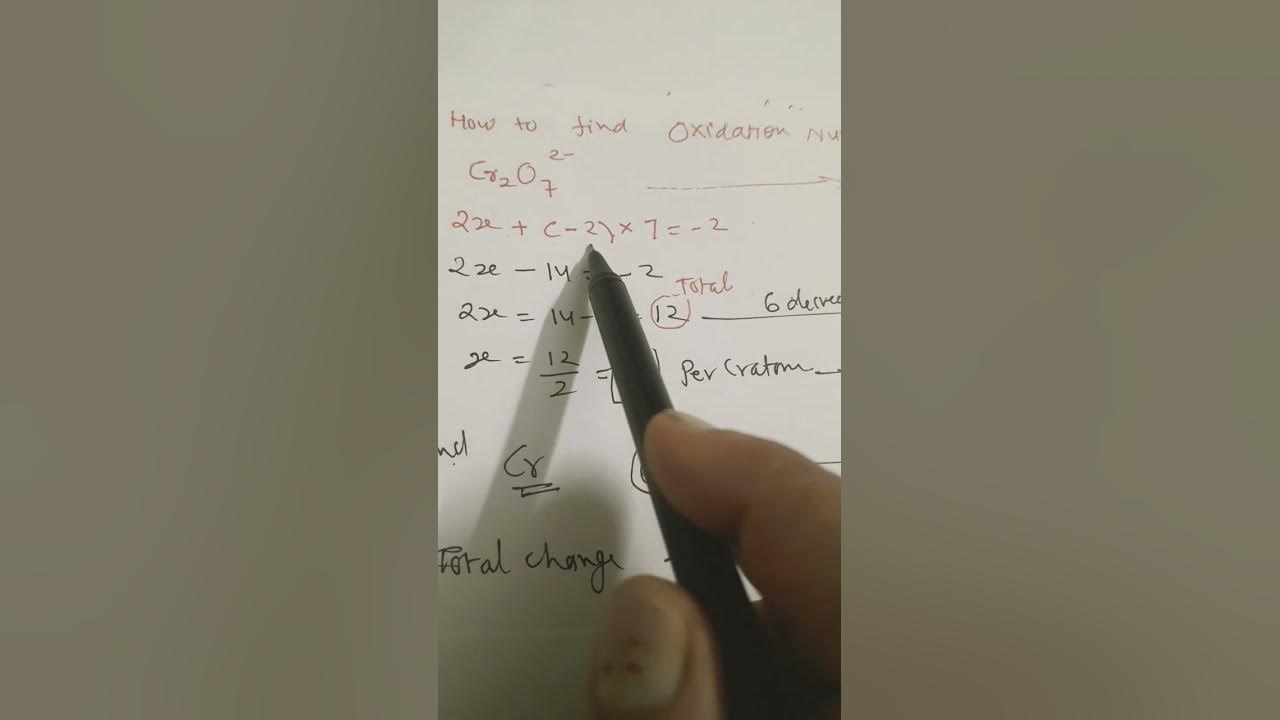 How to find Oxidation Nu
Cr₂O₇²⁻
2x + (-2) × 7 = -2
2x - 14 = - 2
Total
2x = 14 - = 12 6
x = 12/2 = Per Cr atom
nd Cr
Total change